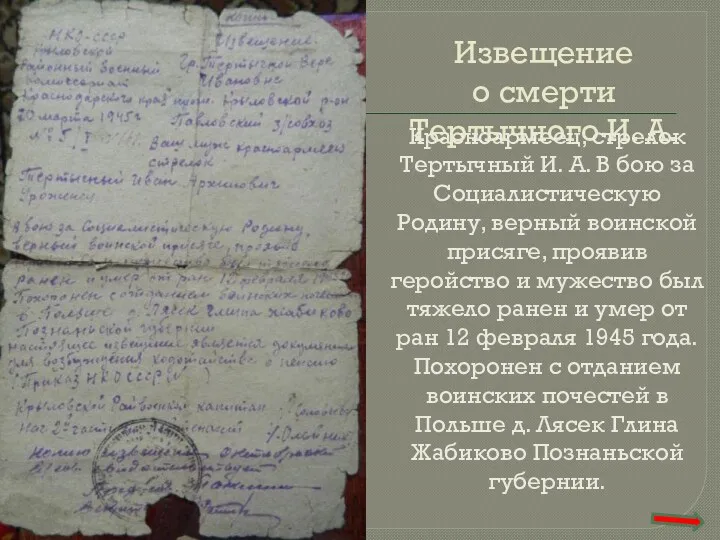 копия
НКО-СССР
Крыловской
Районный Военный
Комиссариат
Краснодарского края
20 марта 1945г
Извещение.
Гр. Тертычной Вере
Ивановне
Крыловской р-он
Павловский з/совхоз
Ваш муж красноармеец
стрелок
Тертычный Иван Архипович
Уроженец
В бою за Социалистическую Родину,
верный воинской присяге, проявив
ранен и умер от ран 12 февраля
Похоронен с отданием воинских почестей
в Польше д. Лясек Глина Жабиково
Познаньской губернии
настоящее извещение является документом
для возбуждения ходатайства о пенсии
(Приказ НКО СССР №
Крыловской Райвоенком капитан /Соловьев
Нач 2й части /Олейник
Извещение
о смерти
Тертычного И. А.
Красноармеец, стрелок
Тертычный И. А. В бою за
Социалистическую
Родину, верный воинской
присяге, проявив
геройство и мужество был
тяжело ранен и умер от
ран 12 февраля 1945 года.
Похоронен с отданием
воинских почестей в
Польше д. Лясек Глина
Жабиково Познаньской
губернии.